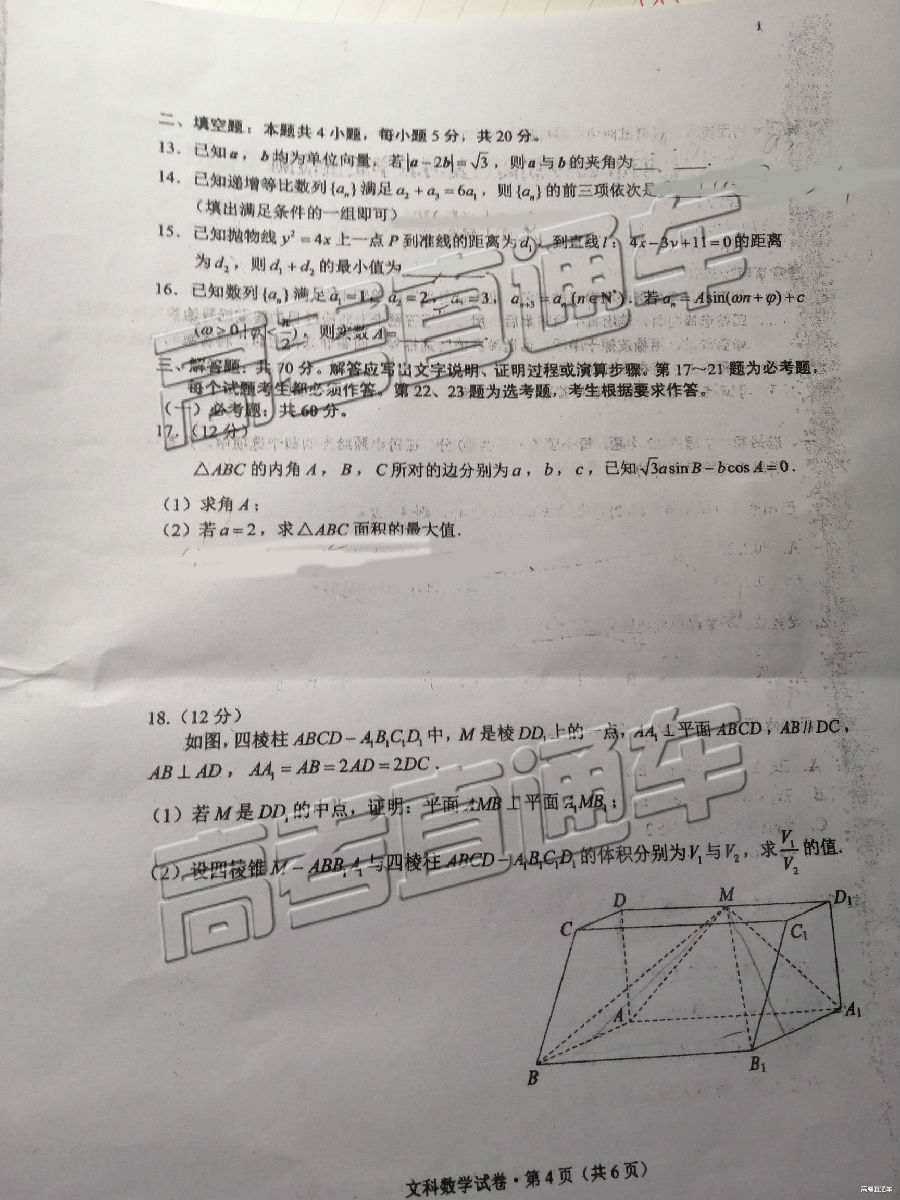 二、填空题：本题共4小题，每小题5分，共20分。
13. 已知a，b均为单位向量，若|a-2b|=√3，则a与b的夹角为____.
14. 已知递增等比数列{aₙ}满足a₂+a₃=6a₁，则{aₙ}的前三项依次是
（填出满足条件的一组即可）
15. 已知抛物线y²=4x上一点P到准线的距离为d₁，到直线l：4x-3y+11=0的距离
为d₂，则d₁+d₂的最小值为____
16. 已知数列{aₙ}满足a₁=1，a₂=2，a₃=3，aₙ₊₃=aₙ(n∈N*)．若aₙ=Asin(ωn+φ)+c
(ω>0,|φ|<π/2)，则实数A=____.
三、解答题：共70分。解答应写出文字说明、证明过程或演算步骤。第17～21题为必考题，
每个试题考生都必须作答。第22、23题为选考题，考生根据要求作答。
（一）必考题：共60分。
17.（12分）
△ABC的内角A，B，C所对的边分别为a，b，c，已知√3asinB-bcosA=0.
（1）求角A；
（2）若a=2，求△ABC面积的最大值.
18.（12分）
如图,四棱柱ABCD-A₁B₁C₁D₁中，M是棱DD₁上的一点，AA₁⊥平面ABCD，AB∥DC，
AB⊥AD，AA₁=AB=2AD=2DC.
（1）若M是DD₁的中点，证明：平面AMB⊥平面A₁MB₁；
（2）设四棱锥M-ABB₁A₁与四棱柱ABCD-A₁B₁C₁D₁的体积分别为V₁与V₂，求V₁/V₂的值.
D M D₁
C C₁
A A₁
B B₁
文科数学试卷·第4页（共6页）
高考直通车
高考直通车
高考直通车